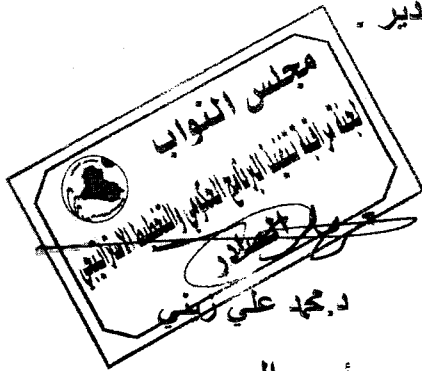 دير .
مجلس النواب
لجنة مراقبة تنفيذ البرنامج الحكومي والتخطيط الاستراتيجي
الصادر
د.محمد علي